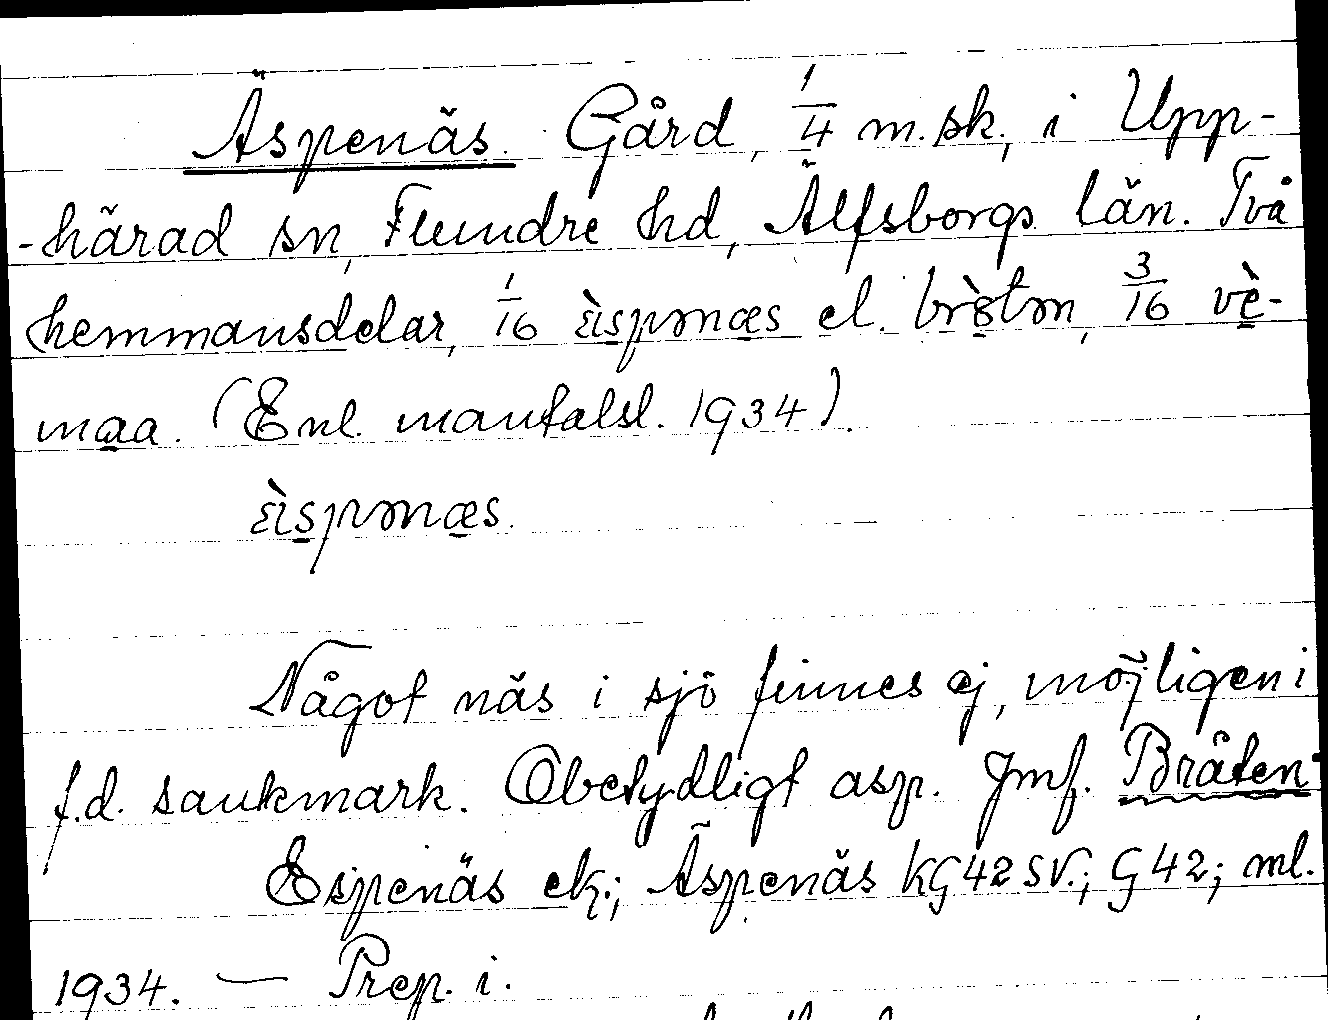 Äspenäs. Gård, 1/4 m.sk., i Upp-
-härad sn, Flundre hd, Älfsborgs län. Två
hemmansdelar, 1/16 el. 3/16
(Enl. mantalsl. 1934).
Något näs i sjö finnes ej, möjligen i
f.d. sankmark. Obetydligt asp. Jmf. Bråten
Espenäs ek.; Äspenäs KG 42 SV.; G 42; ml.
1934. — Prep. i.